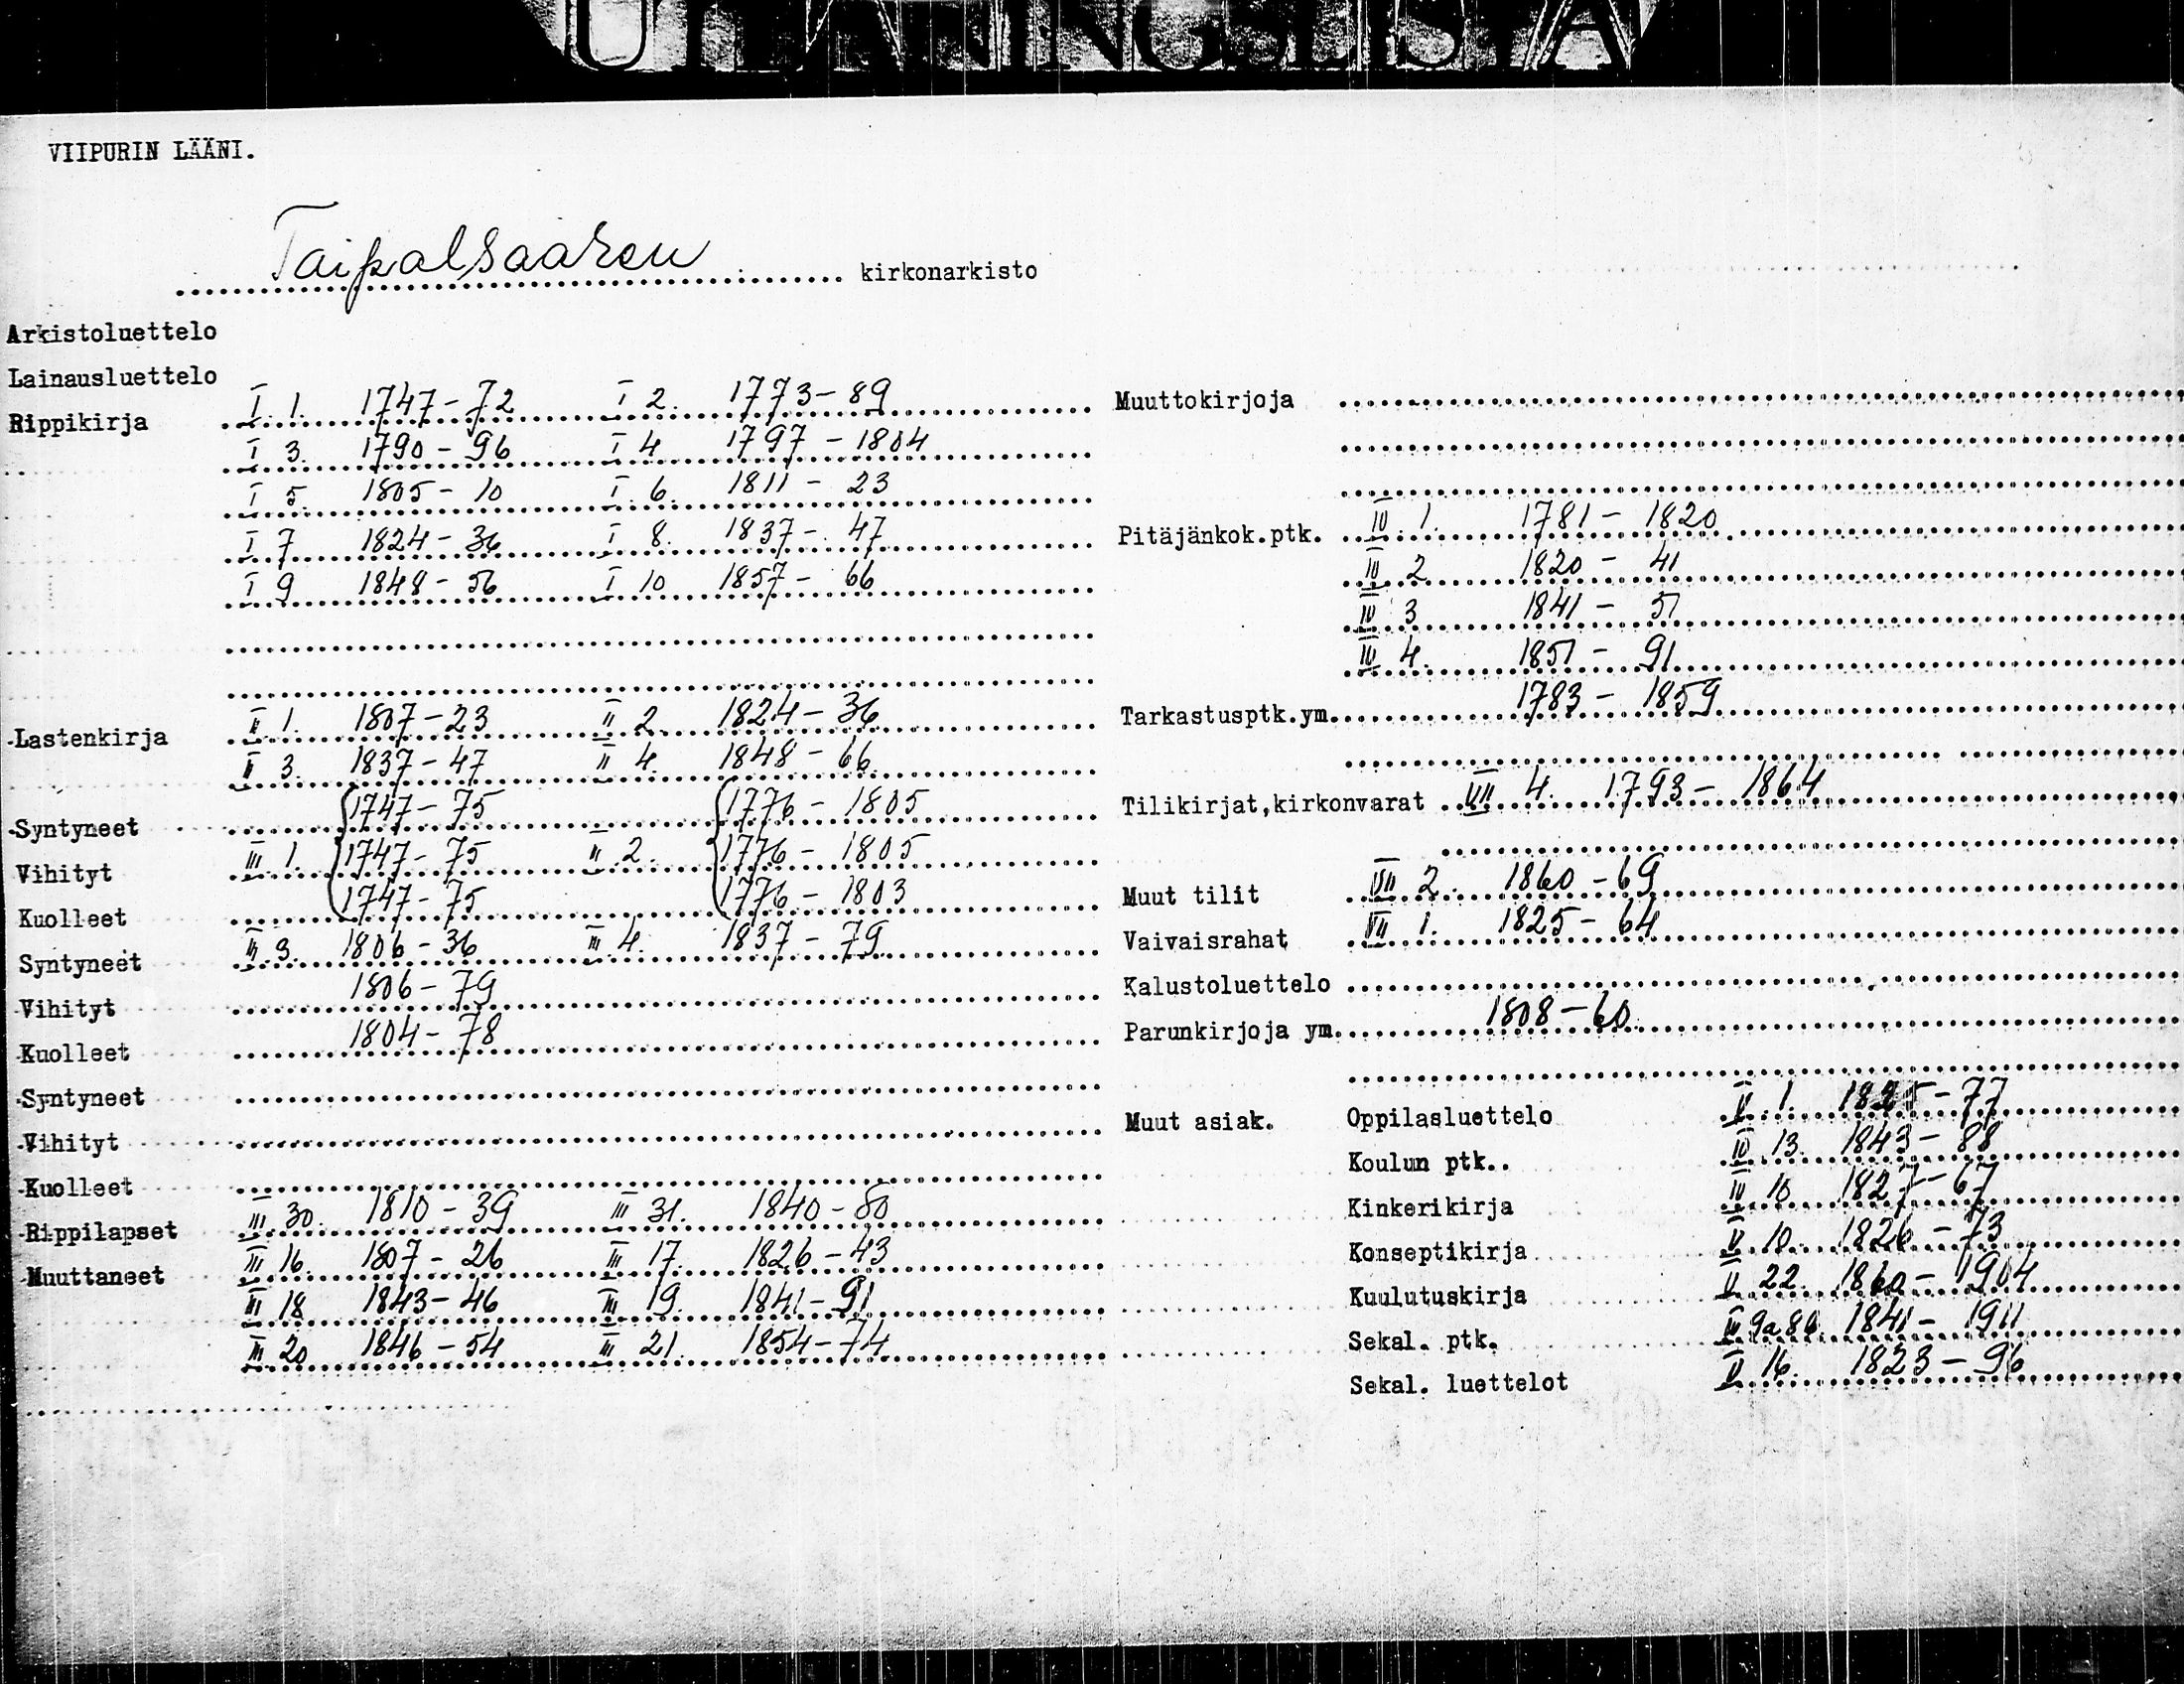 UTLÅNINGSLISTA
VIIPURIN LÄÄNI.
Taipalsaaren kirkonarkisto
Arkistoluettelo
Lainausluettelo
Rippikirja I 1. 1747-72 I 2. 1773-89
I 3. 1790-96 I 4 1797-1804
I 5. 1805-10 I 6. 1811-23
I 7 1824-36 I 8. 1837-47
I 9 1848-56 I 10 1857-66
Lastenkirja II 1. 1807-23 II 2. 1824-36
II 3. 1837-47 II 4. 1848-66
Syntyneet 1747-75 1776-1805
Vihityt III 1. 1747-75 II 2. 1776-1805
Kuolleet 1747-75 1776-1803
Syntyneet III 3. 1806-36 III 4. 1837-79
Vihityt 1806-79
Kuolleet 1804-78
Syntyneet
Vihityt
Kuolleet
Rippilapset III 30. 1810-39 III 31. 1840-80
Muuttaneet III 16. 1807-26 III 17. 1826-43
III 18 1843-46 III 19. 1841-91
III 20 1846-54 III 21. 1854-74
Muuttokirjoja
Pitäjänkok.ptk. IV 1. 1781-1820
IV 2 1820-41
IV 3 1841-51
IV 4. 1851-91
Tarkastusptk.ym. 1783-1859
Tilikirjat,kirkonvarat VII 4. 1793-1864
Muut tilit VII 2. 1860-69
Vaivaisrahat VII 1. 1825-64
Kalustoluettelo
Parunkirjoja ym. 1808-60
Muut asiak. Oppilasluettelo V 1. -77
Koulun ptk.. IV 13. 1843-88
Kinkerikirja IV 10. 1827-67
Konseptikirja V 10. 1826-73
Kuulutuskirja V 22. 1860-1904
Sekal. ptk. 1841-1911
Sekal. luettelot V 16. 1823-96